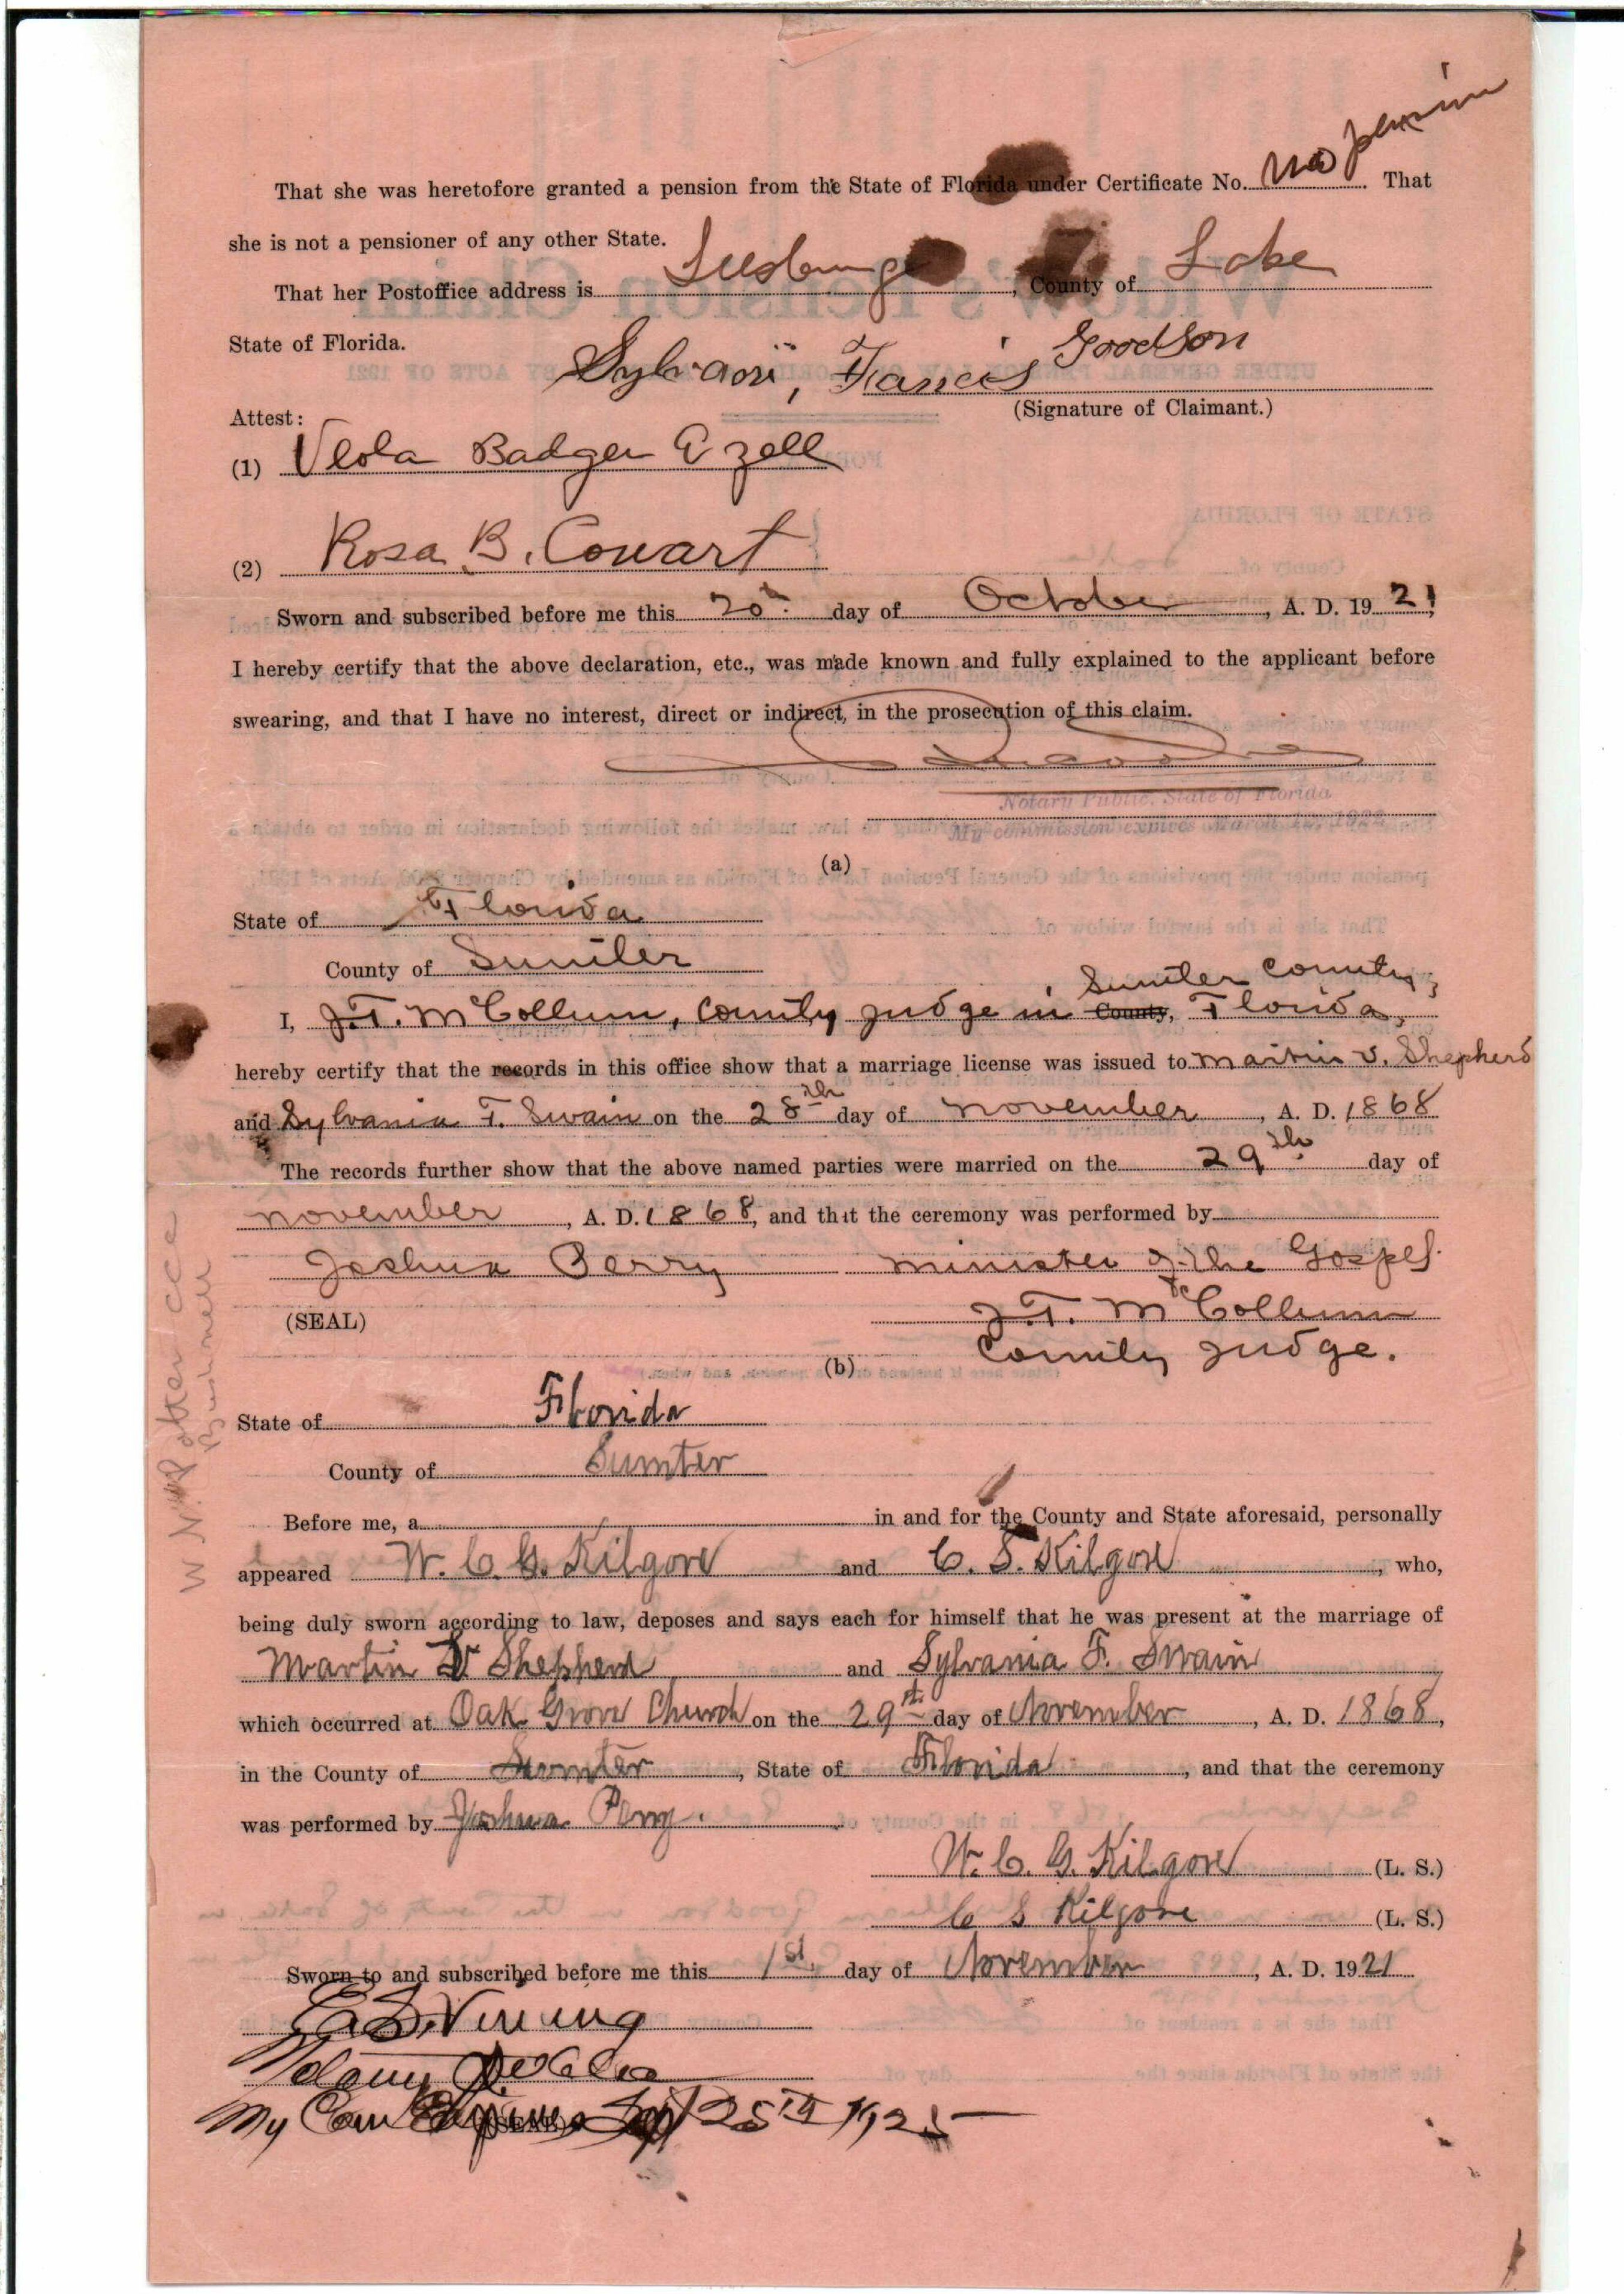 That she was heretofore granted a pension from the State of Florida under Certificate No. no pension That
she is not a pensioner of any other State.
That her Postoffice address is Leesburg, County of Lake
State of Florida.
Sylvani, Francis Goodson
(Signature of Claimant.)
Attest:
(1) Veola Badger Ezell
(2) Rosa B. Cowart
Sworn and subscribed before me this 20th day of October, A. D. 1921,
I hereby certify that the above declaration, etc., was made known and fully explained to the applicant before
swearing, and that I have no interest, direct or indirect, in the prosecution of this claim.
Notary Public, State of Florida
My commission expires 1922
(a)
State of Florida
County of Sumter
Sumter County,
I, J. T. McCollum, County Judge in County, Florida,
hereby certify that the records in this office show that a marriage license was issued to Martin V. Shepherd
and Sylvania F. Swain on the 28th day of November, A. D. 1868
The records further show that the above named parties were married on the 29th day of
November, A. D. 1868, and that the ceremony was performed by
Joshua Perry minister of the Gospel.
(SEAL) J. T. McCollum
County Judge.
(b)
State of Florida
County of Sumter
Before me, a in and for the County and State aforesaid, personally
appeared W. C. G. Kilgore and C. S. Kilgore, who,
being duly sworn according to law, deposes and says each for himself that he was present at the marriage of
Martin V Shepherd and Sylvania F. Swain
which occurred at Oak Grove Church on the 29th day of November, A. D. 1868,
in the County of Sumter, State of Florida, and that the ceremony
was performed by Joshua Perry.
W. C. G. Kilgore (L. S.)
C S Kilgore (L. S.)
Sworn to and subscribed before me this 1st. day of November, A. D. 1921
Vining
Notary Public
My Com Expires Sept 25th 1925
(SEAL)
W. N. Potter CCC
Bushnell